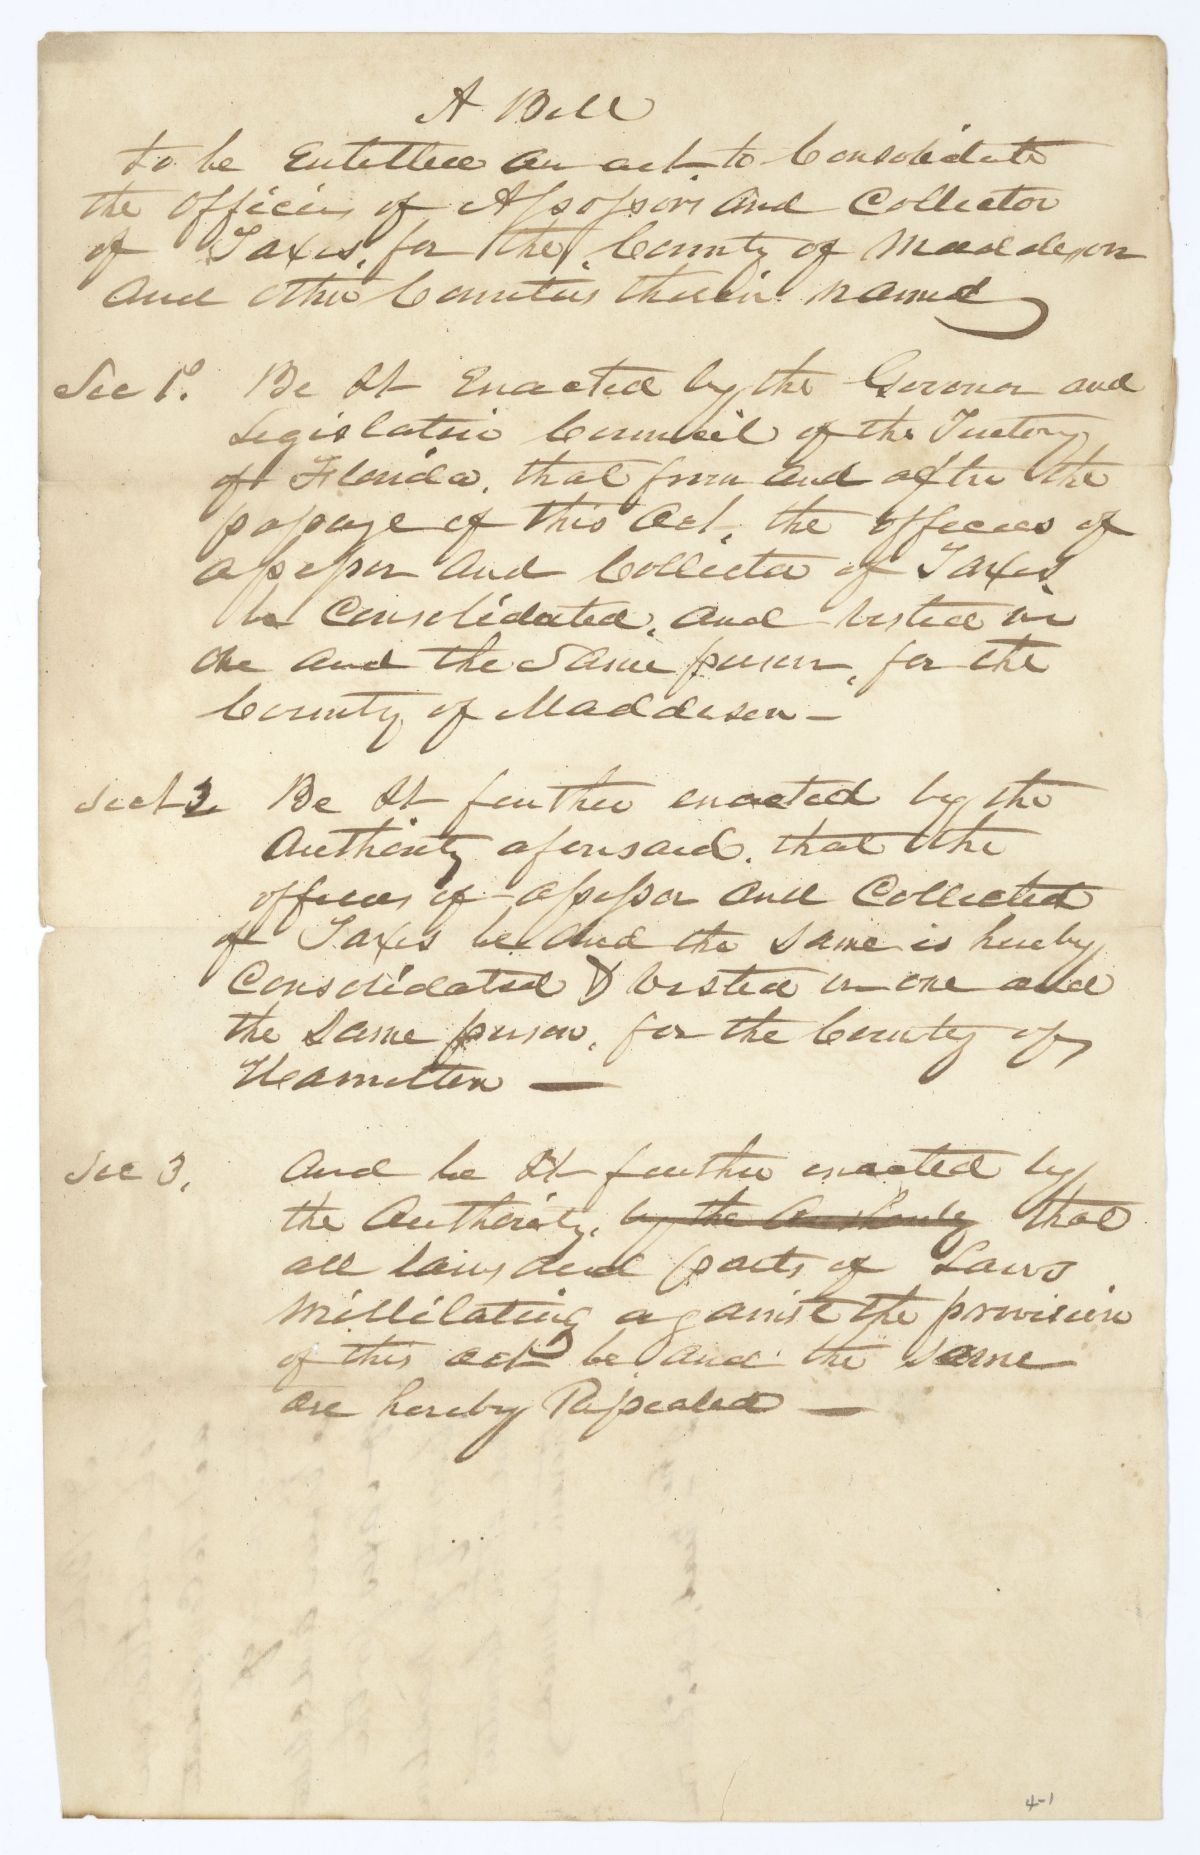 A Bill
to be Entitled an act to Consolidate
the Offices of Assossors and Collector
of Taxes, for the County of Maddeson
and other Counties therein named
Sec 1st. Be It Enacted by the Governor and
Legislative Council of the Teretory
of Florida, that from and after the
passage of this Act, the offices of
assessor and Collector of Taxes
be Consolidated, and vested in
one and the Same person, for the
County of Maddeson —
Sect 2 Be It further enacted by the
Authority aforesaid, that the
offices of assessor and Collected
of Taxes be and the same is hereby
Consolidated & vested in one and
the Same person, for the County of
Hamilton —
Sec 3. And be It further enacted by
the Authority, by the Authority that
all laws and parts of Laws
Millilating against the provision
of this act be and the same
are hereby Repealed —
4-1